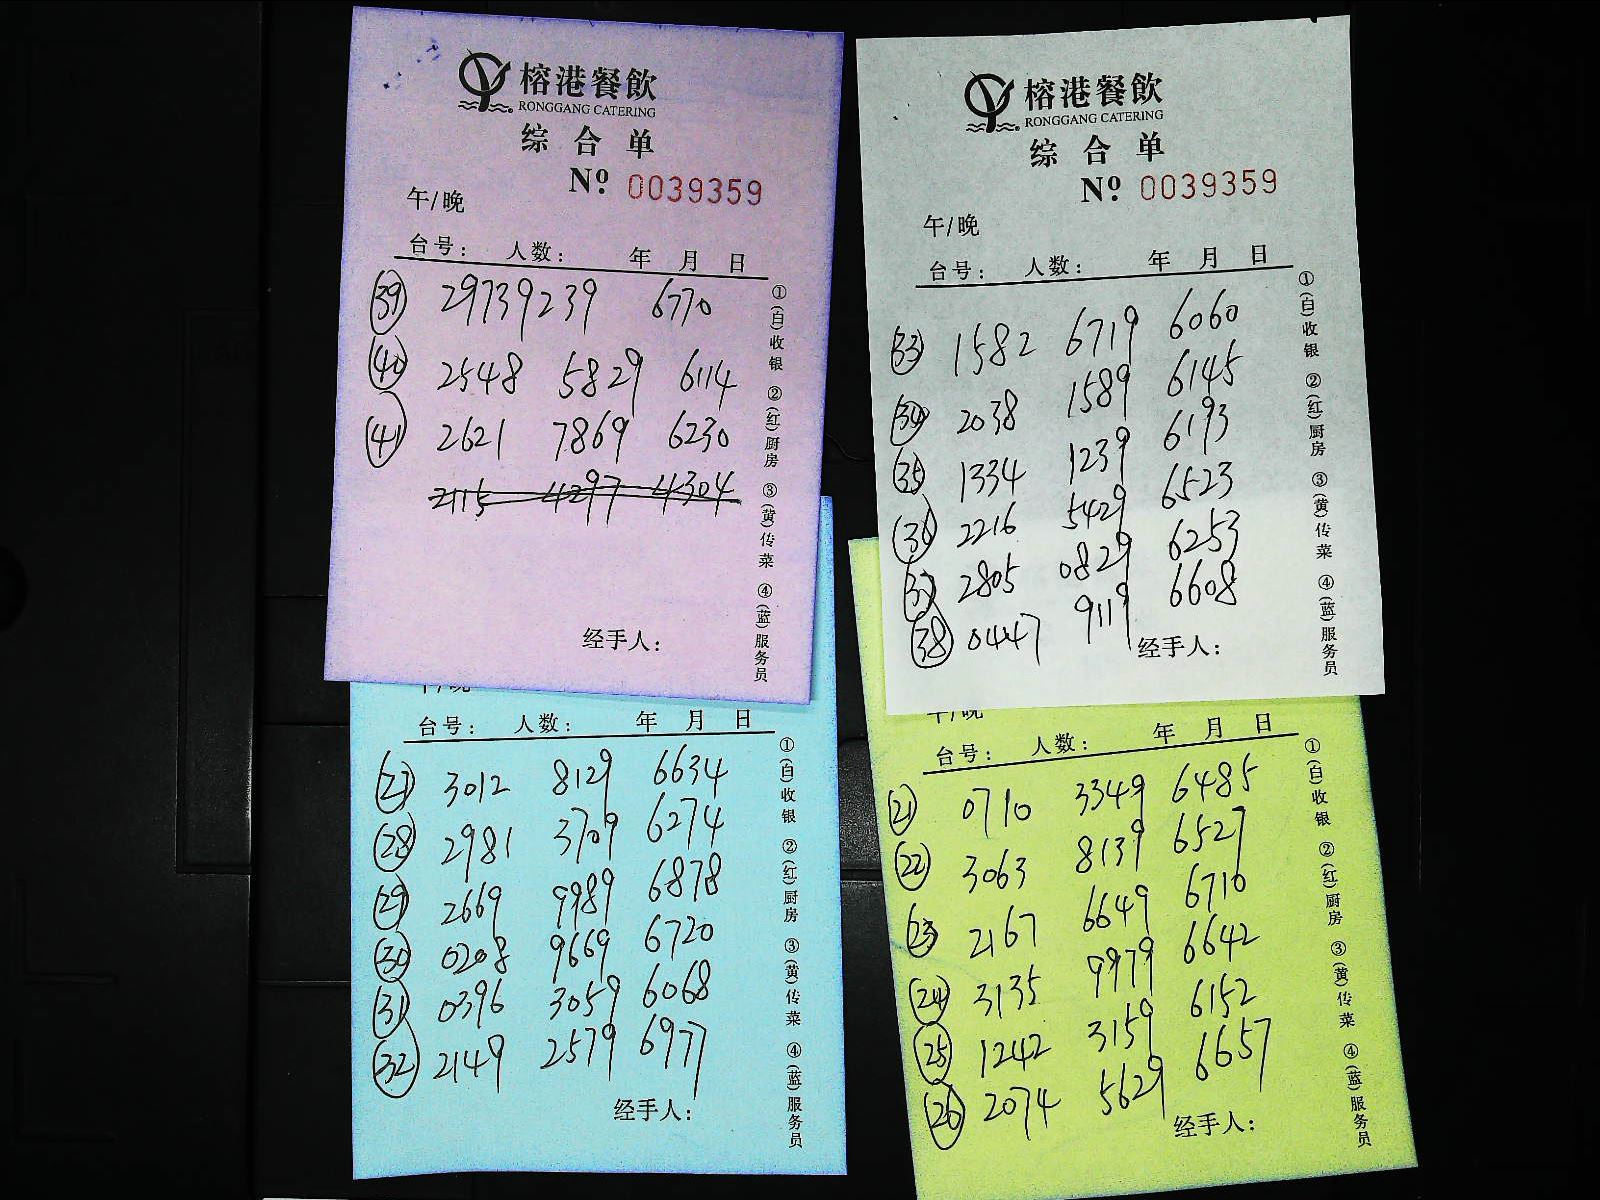 榕港餐飲
RONGGANG CATERING
综合单
Nº 0039359
午/晚
台号: 人数: 年 月 日
㊴ 29739239 6770
㊵ 2548 5829 6114
㊶ 2621 7869 6230
2115 4297 4304
经手人:
①(白)收银 ②(红)厨房 ③(黄)传菜 ④(蓝)服务员
榕港餐飲
RONGGANG CATERING
综合单
Nº 0039359
午/晚
台号: 人数: 年 月 日
㉝ 1582 6719 6060
㉞ 2038 1589 6145
㉟ 1334 1239 6193
㊱ 2216 5429 6523
㊲ 2805 0829 6253
㊳ 0447 9119 6608
经手人:
①(白)收银 ②(红)厨房 ③(黄)传菜 ④(蓝)服务员
午/晚
台号: 人数: 年 月 日
㉗ 3012 8129 6634
㉘ 2981 3709 6274
㉙ 2669 9989 6878
㉚ 0208 9669 6720
㉛ 0396 3059 6068
㉜ 2149 2579 6977
经手人:
①(白)收银 ②(红)厨房 ③(黄)传菜 ④(蓝)服务员
午/晚
台号: 人数: 年 月 日
㉑ 0710 3349 6485
㉒ 3063 8139 6527
㉓ 2167 6649 6710
㉔ 3135 9979 6642
㉕ 1242 3159 6152
㉖ 2074 5629 6657
经手人:
①(白)收银 ②(红)厨房 ③(黄)传菜 ④(蓝)服务员